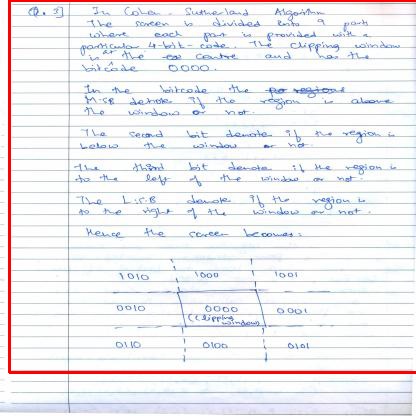 Q. 2] In Cohen-Sutherland Algorithm
The screen is divided into 9 part
where each part is provided with a
particular 4-bit-code. The clipping window
is at the centre and has the
bitcode 0000.
In the bitcode the
M.SB denote if the region is above
the window or not.
The second bit denote if the region is
below the window or not.
The third bit denote if the region is
to the left of the window or not.
The L.S.B denote if the region is
to the right of the window or not.
Hence the screen becomes:
1010 1000 1001
0010 0000 0001
(Clipping
window)
0110 0100 0101